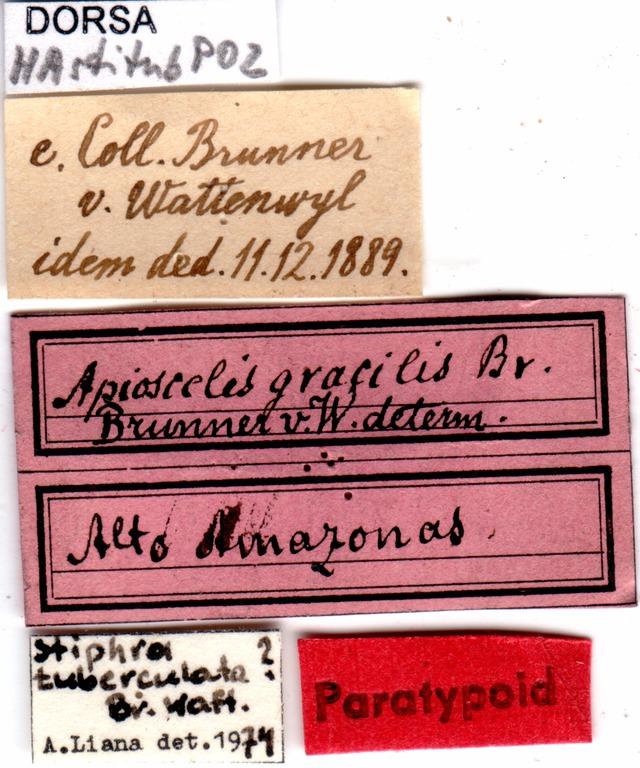 DORSA
HAstitubP02
e. Coll. Brunner
v. Wattenwyl
idem ded. 11.12.1889.
Apioscelis gracilis Br.
Brunner v. W. determ.
Alto Amazonas
Stiphra ?
tuberculata
Br. Watt.
A.Liana det.1974
Paratypoid